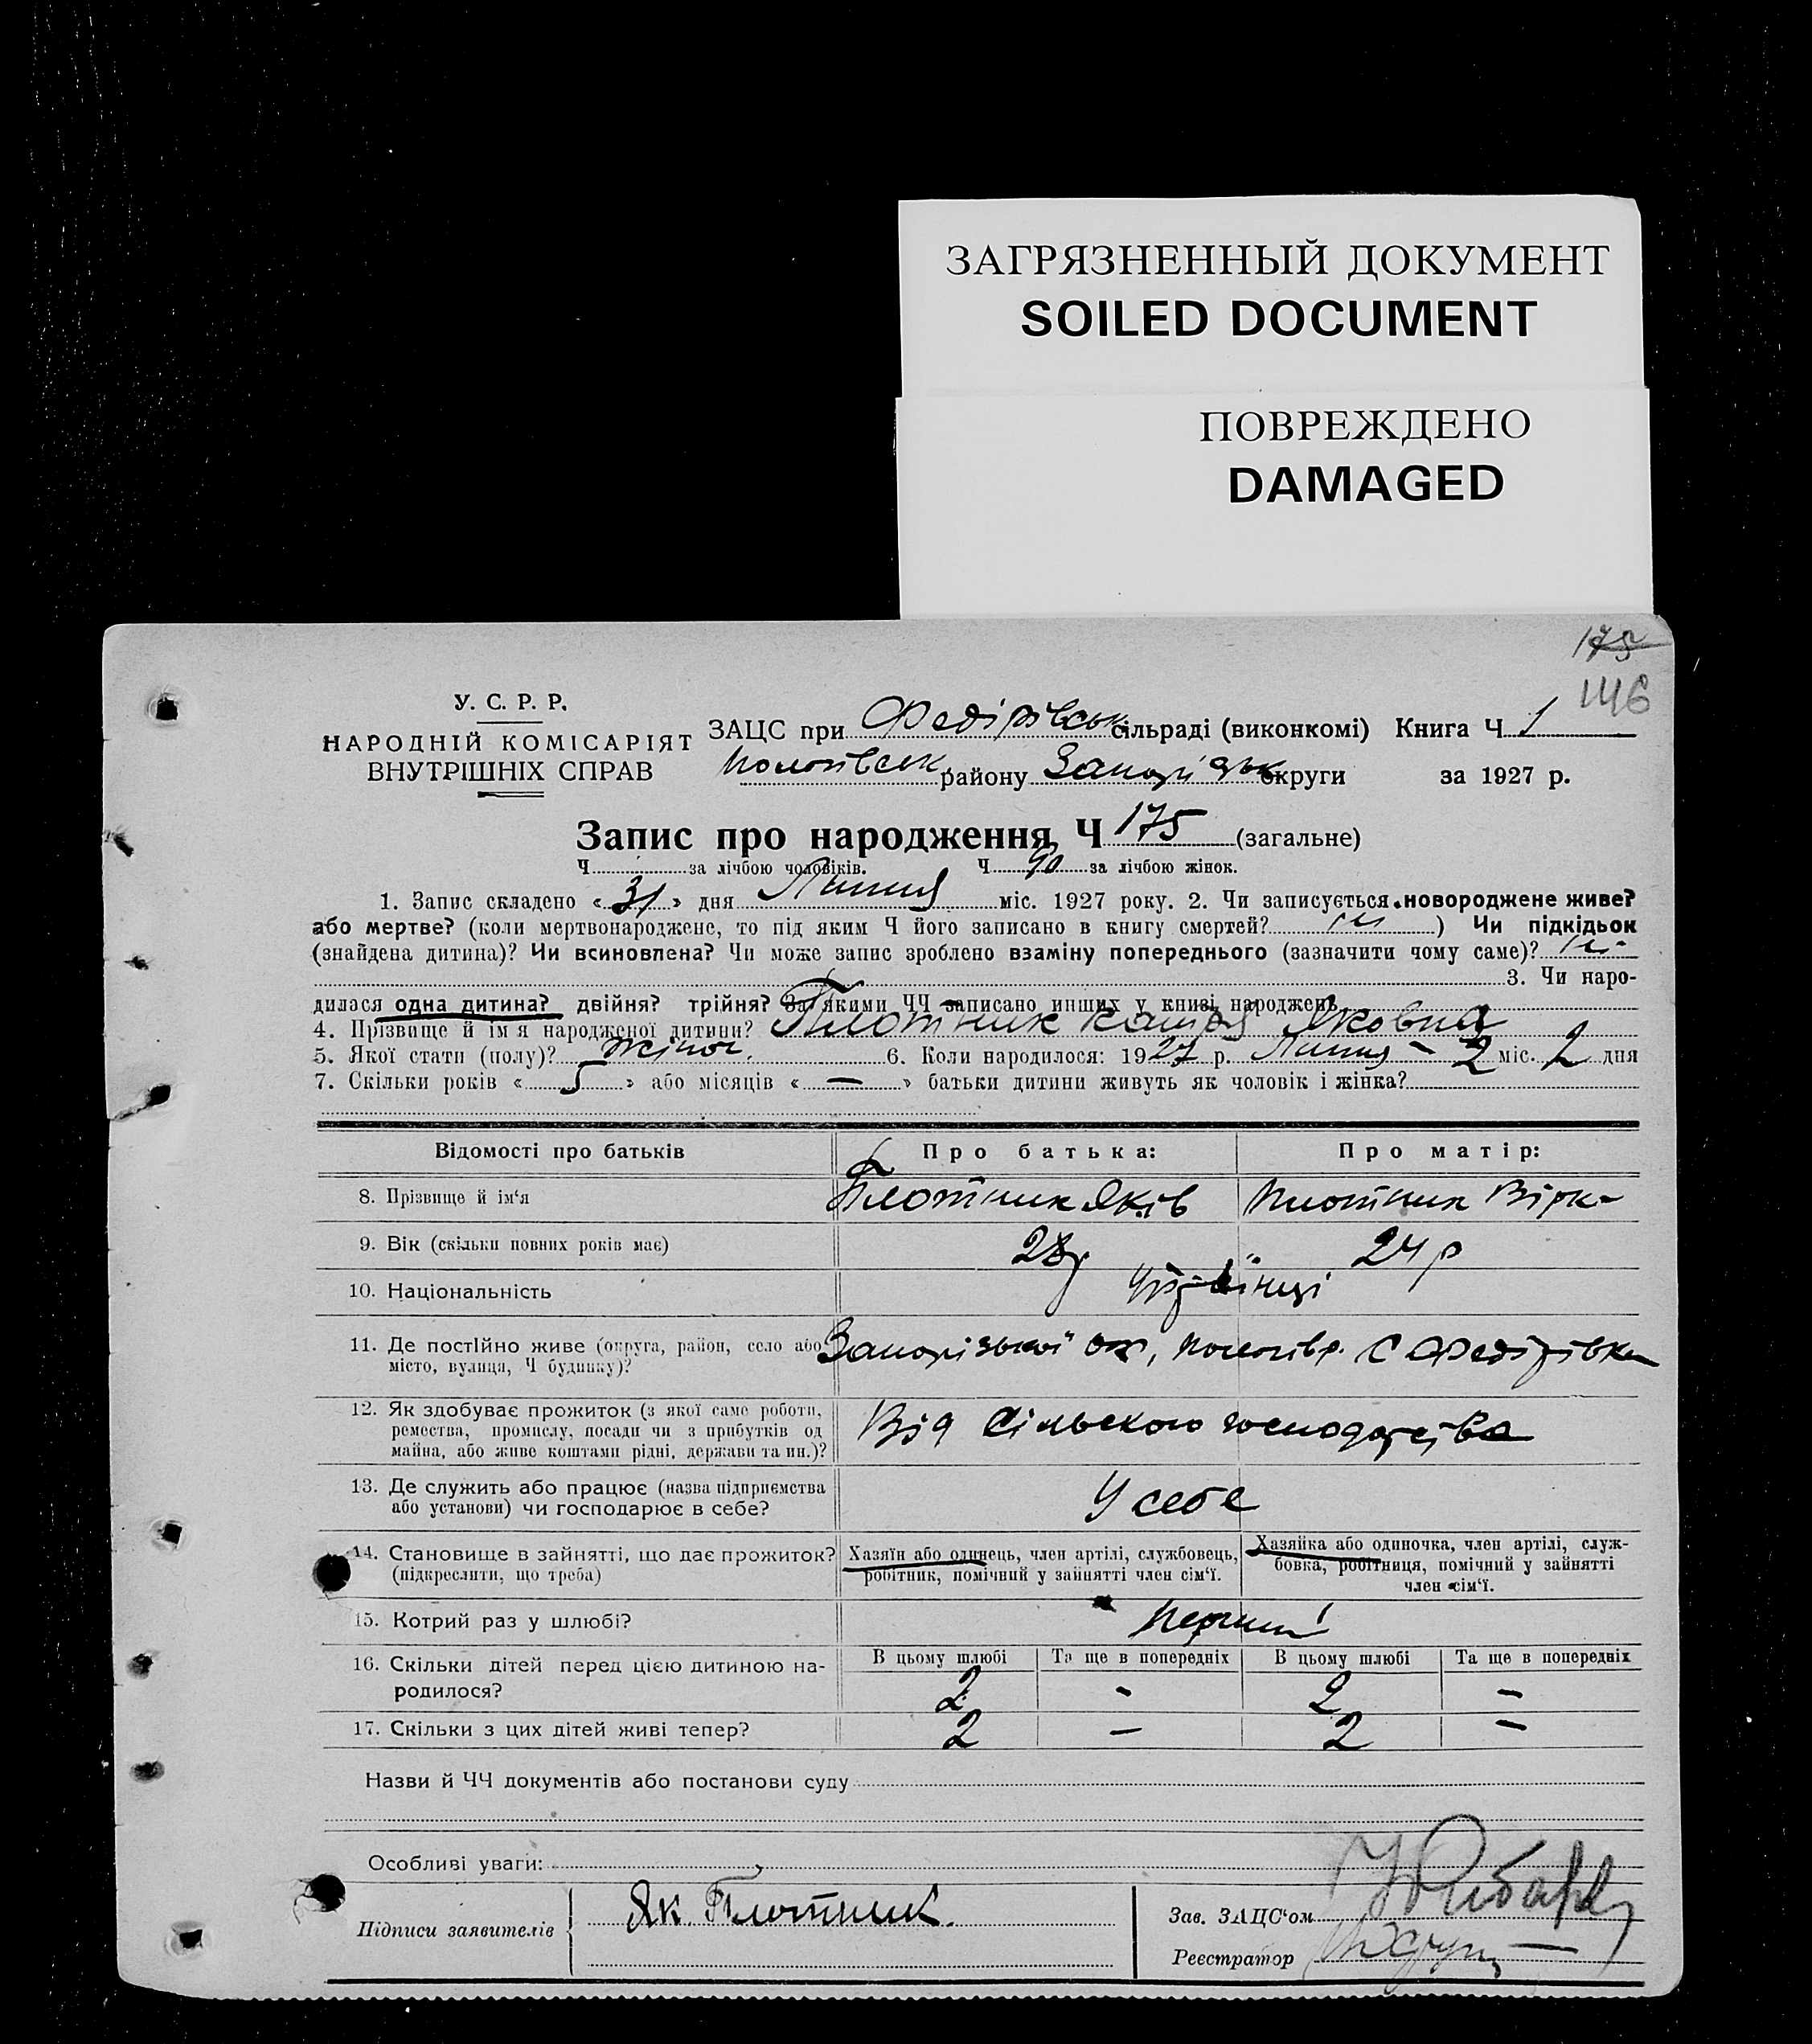 ЗАГРЯЗНЕННЫЙ ДОКУМЕНТ
SOILED DOCUMENT
ПОВРЕЖДЕНО
DAMAGED
175
146
У. С. Р. Р.
НАРОДНІЙ КОМІСАРІЯТ
ВНУТРІШНІХ СПРАВ
ЗАЦС при Федірівськ сільраді (виконкомі) Книга Ч 1
Пологівськ району Запорізьк округи за 1927 р.
Запис про народження Ч 175 (загальне)
Ч за лічбою чоловіків. Ч 90 за лічбою жінок.
1. Запис складено « 31 » дня Липня міс. 1927 року. 2. Чи записується новороджене живе?
або мертве? (коли мертвонароджене, то під яким Ч його записано в книгу смертей? ні ) Чи підкідьок
(знайдена дитина)? Чи всиновлена? Чи може запис зроблено взаміну попереднього (зазначити чому саме)? ні
3. Чи наро-
дилася одна дитина? двійня? трійня? За якими ЧЧ записано инших у книзі народжень
4. Прізвище й ім'я народженої дитини? Плотник Катря Яковна
5. Якої стати (полу)? жіноч. 6. Коли народилося: 1927 р. Липня - 2 міс. 2 дня
7. Скільки років « 5 » або місяців « — » батьки дитини живуть як чоловік і жінка?
Відомості про батьків Про батька: Про матір:
8. Прізвище й ім'я Плотник Яків Плотник Вірка
9. Вік (скільки повних років має) 28 р 24 р
10. Національність Українці
11. Де постійно живе (округа, район, село або Запорізької ок, Пологів р. С Федірівка
місто, вулиця, Ч будинку)?
12. Як здобуває прожиток (з якої саме роботи,
ремества, промислу, посади чи з прибутків од Від сільского господарства
майна, або живе коштами рідні, держави та ин.)?
13. Де служить або працює (назва підприємства У себе
або установи) чи господарює в себе?
14. Становище в зайнятті, що дає прожиток? Хазяїн або одинець, член артілі, службовець, Хазяйка або одиночка, член артілі, служ-
(підкреслити, що треба) робітник, помічний у зайнятті член сім'ї. бовка, робітниця, помічний у зайнятті
член сім'ї.
15. Котрий раз у шлюбі? Перший
16. Скільки дітей перед цією дитиною на- В цьому шлюбі Та ще в попередніх В цьому шлюбі Та ще в попередніх
родилося? 2 - 2 -
17. Скільки з цих дітей живі тепер? 2 — 2 -
Назви й ЧЧ документів або постанови суду
Особливі уваги:
Підписи заявителів Як. Плотник.
Зав. ЗАЦС'ом
Реєстратор